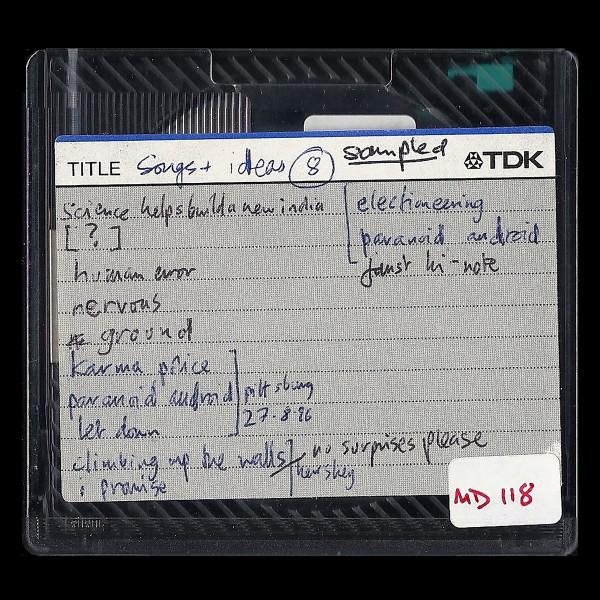 TITLE songs + ideas 8 sampled TDK
science helps build a new india
[?]
human error
nervous
* ground
karma police
paranoid android
let down
pittsburg
27-8-96
climbing up the walls
i promise
hershey
no surprises please
electioneering
paranoid android
faust hi-note
MD 118